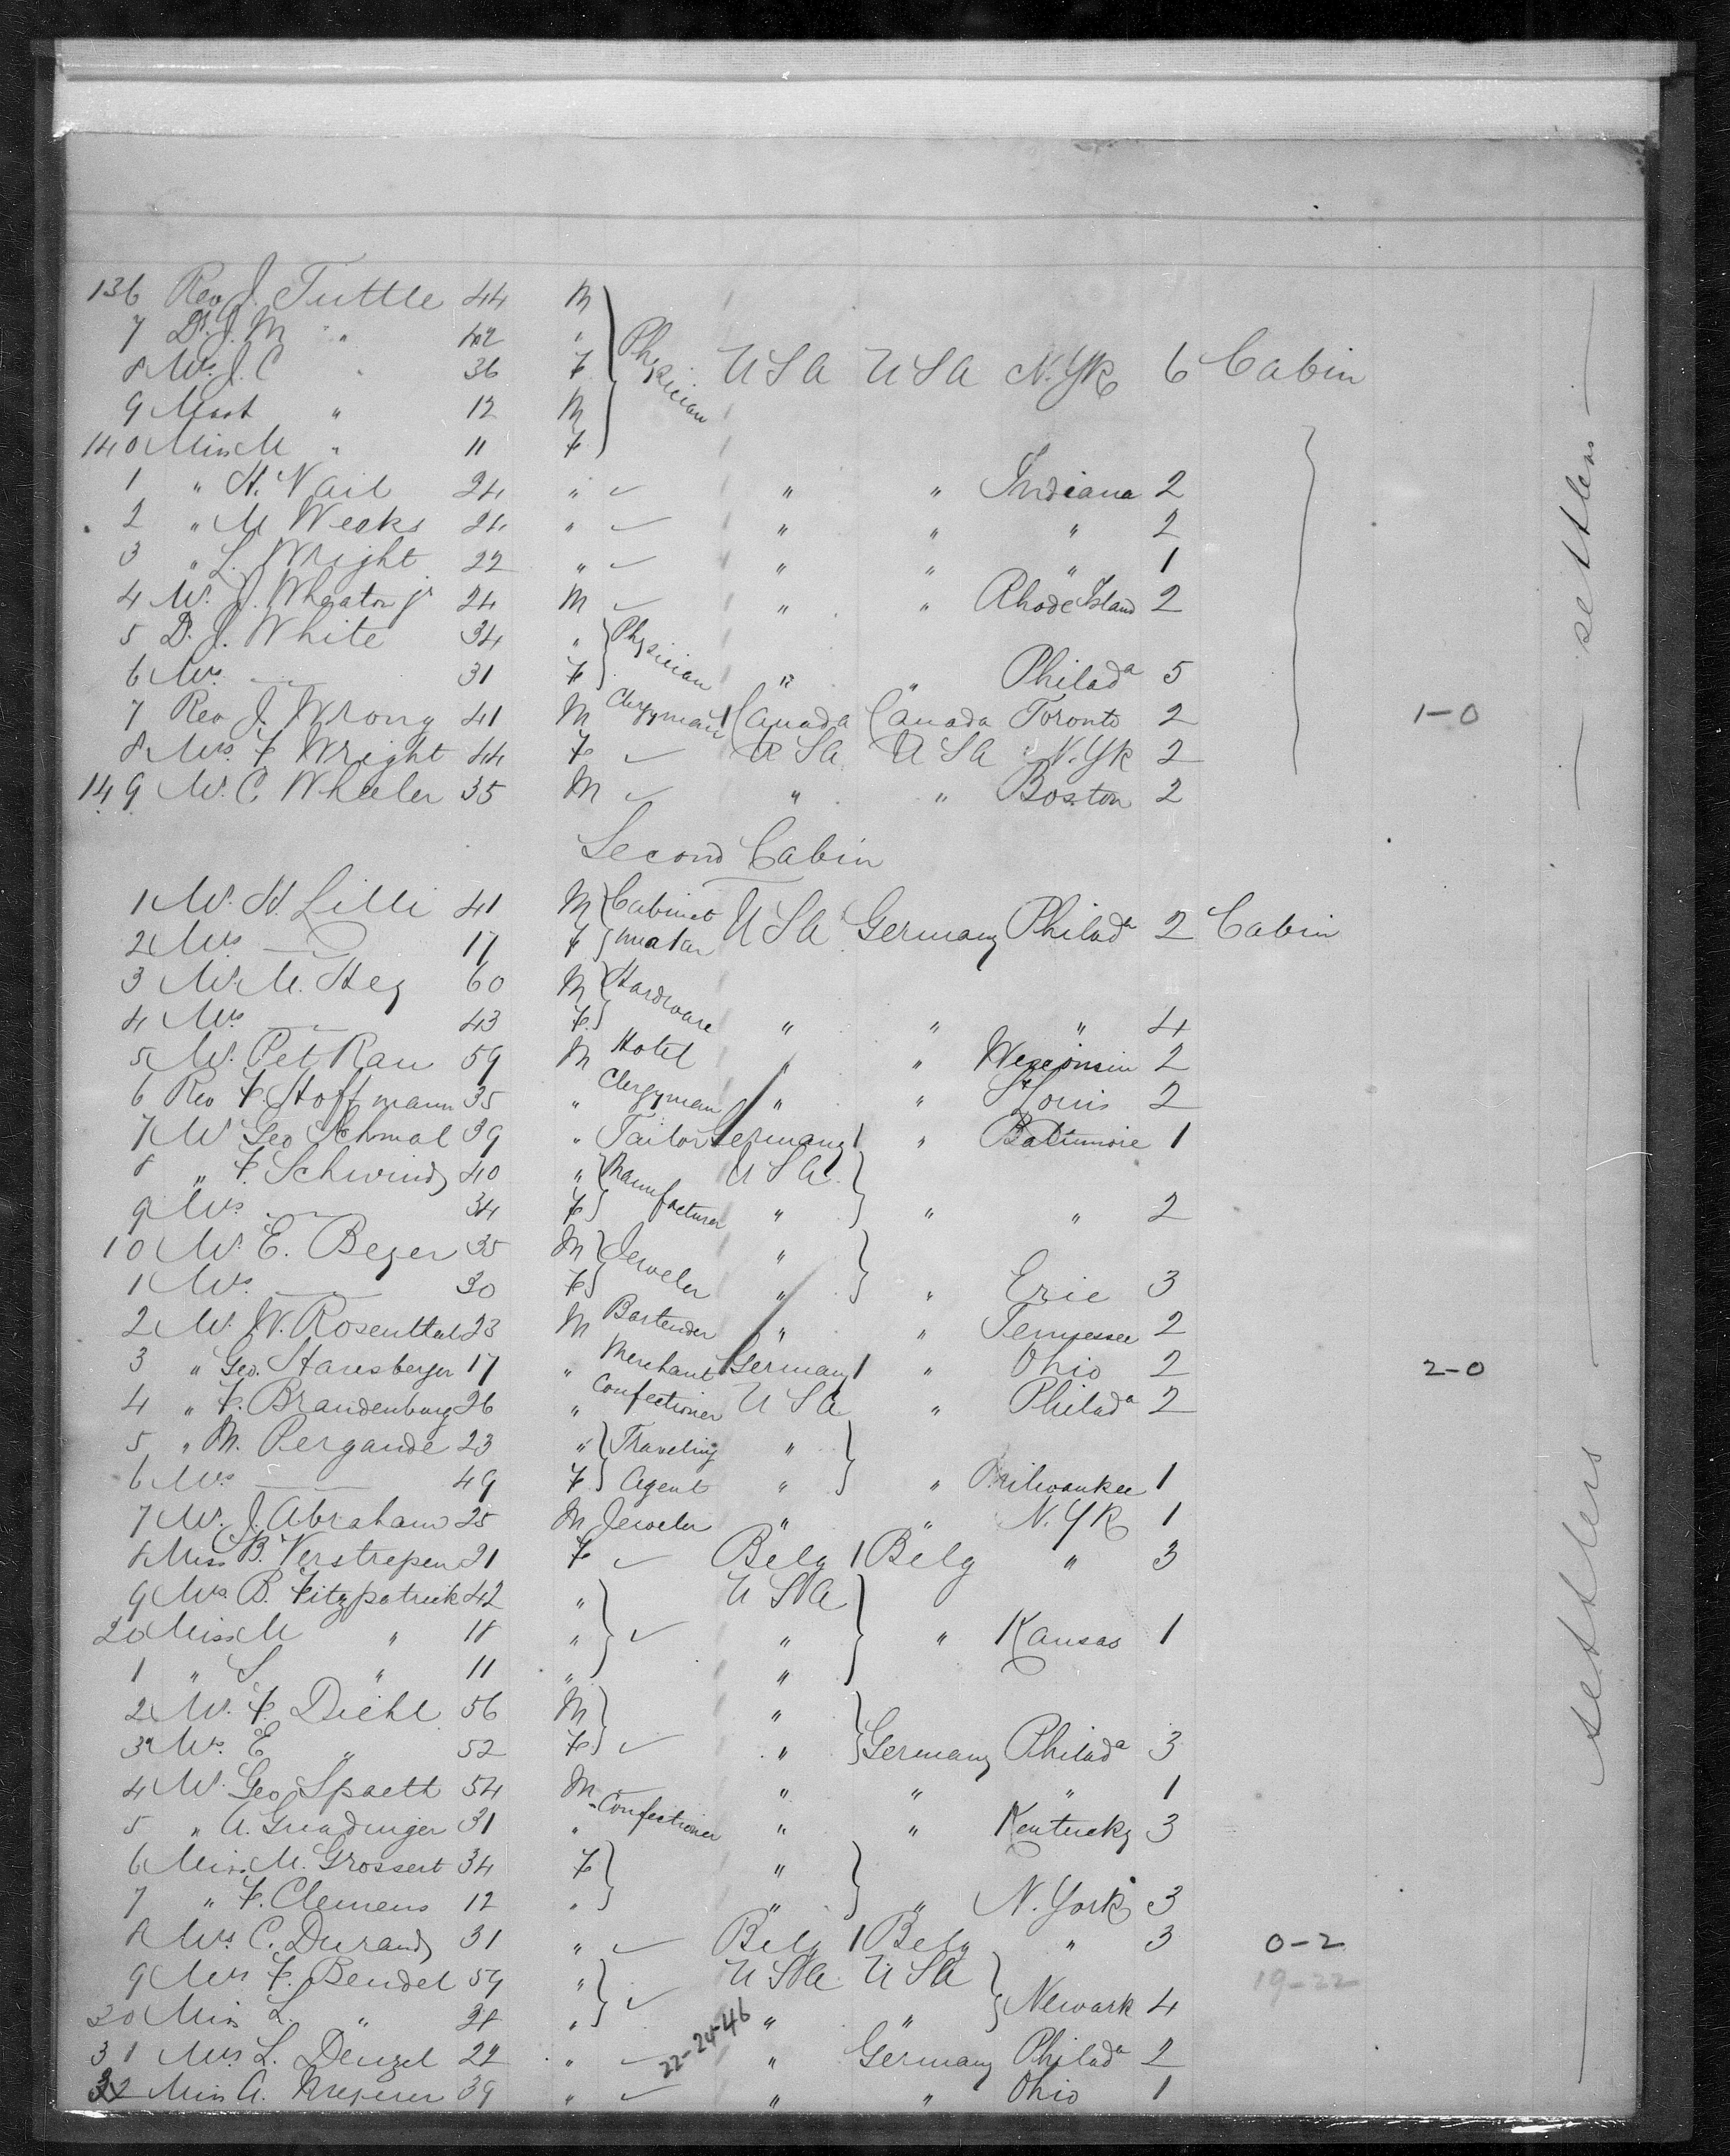 136 Rev J. Tuttle 44 M
7 Dr. J. M " 42 "
8 Mrs. J. C " 36 F Physician USA USA N.Yk 6 Cabin
9 Mast " 12 M
140 Miss M " 11 F
1 " H. Nail 24 " ✓ " " Indiana 2
2 " M Weaks 24 " ✓ " " " 2
3 " L. Wright 22 " ✓ " " " 1
4 Mr. J. Wheaton jr 24 M ✓ " " Rhode Island 2
5 Dr. J. White 34 " Physician
6 Mrs. — 31 F " " Philada 5
7 Rev J. Wrong 41 M Clergyman 1 Canada Canada Toronto 2 1-0
8 Mrs. F Wright 44 F ✓ USA USA N.Yk 2
149 Mr. C. Wheeler 35 M ✓ " " Boston 2
settlers
Second Cabin
1 Mr. H. Lilli 41 M Cabinet
2 Mrs — 17 F maker USA Germany Philada 2 Cabin
3 Mr. M. Heg 60 M Hardware
4 Mrs — 43 F " " " 4
5 Mr. Pet Rau 59 M Hotel " " Wisconsin 2
6 Rev F. Hoffmann 35 " Clergyman " " St Louis 2
7 Mr Geo Schmal 39 " Tailor Germany 1 " Baltimore 1
8 " F. Schwind 40 " Manufacturer USA
9 Mrs. — 34 F " " " 2
10 Mr. E. Beger 35 M Jeweler "
1 Mrs. — 30 F " " Erie 3
2 Mr. W. Rosenthal 23 M Bartender " " Tennessee 2
3 " Geo. Haresberger 17 " Merchant Germany 1 " Ohio 2 2-0
4 " F. Brandenburg 26 " Confectioner USA " Philada 2
5 " M. Pergande 23 " Traveling "
6 Mrs — 49 F Agent " " Milwaukee 1
7 Mr. J. Abraham 25 M Jeweler " " N.Yk 1
8 Miss B. Verstrepen 21 F ✓ Belg 1 Belg " 3
9 Mrs. B. Fitzpatrick 42 " USA
20 Miss M " 18 " ✓ " " Kansas 1
1 " S " 11 " "
2 Mr. F. Diehl 56 M "
3 Mrs. E " 52 F ✓ " Germany Philada 3
4 Mr. Geo Spaett 54 M - " " " 1
5 " A. Gnadinger 31 " Confectioner " " Kentucky 3
6 Miss M. Grossert 34 F "
7 " F. Clemens 12 " " " N. York 3
8 Mrs C. Durand 31 " ✓ Belg 1 Belg " 3 0-2
9 Mrs F. Bendel 59 " USA USA 19-22
30 Miss L. " 28 " ✓ " " Newark 4
31 Mrs L. Denzel 22 " ✓ 22-24-46 " Germany Philada 2
32 Miss A. 39 " ✓ " " Ohio 1
settlers